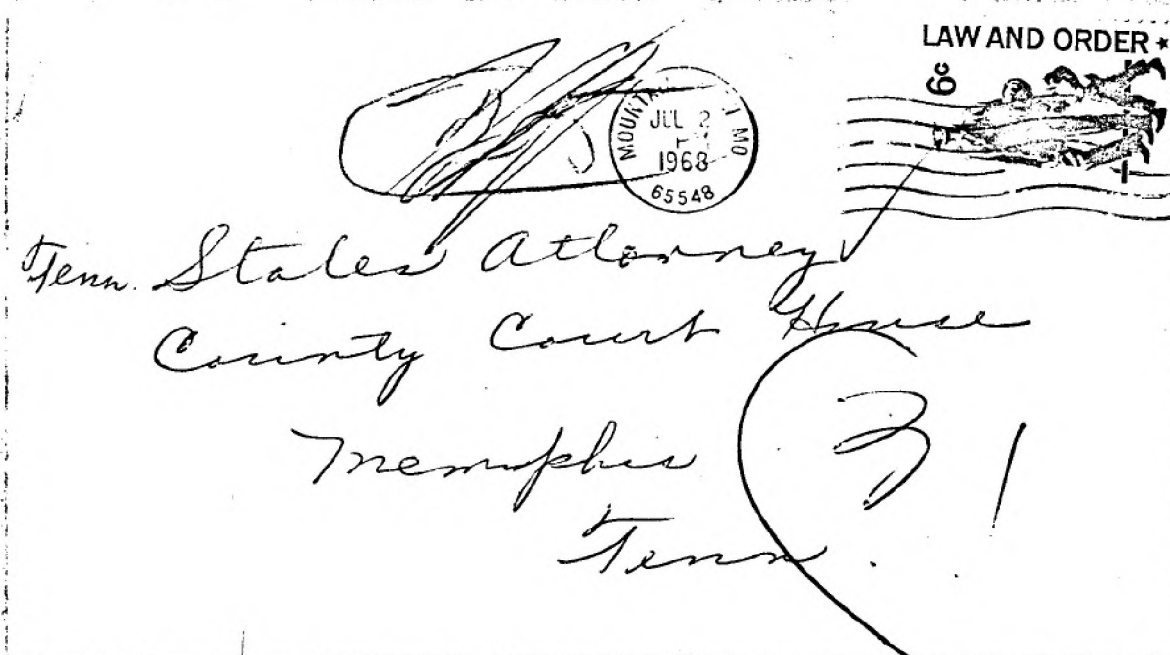 LAW AND ORDER
6c
MOUNTA
JUL 2
PM
1968
MO
65548
Tenn. States Attorney
County Court House
Memphis
Tenn.
31